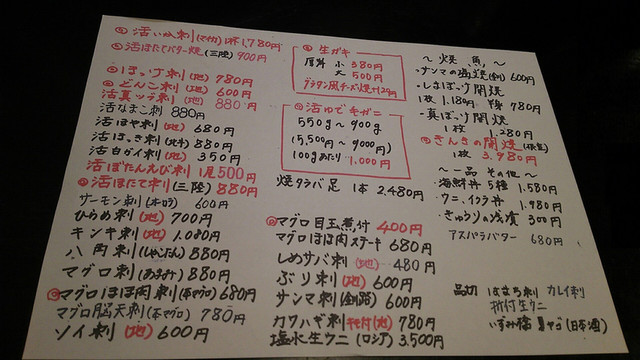 活いか刺(マイカ)1杯1,780円
活ほたてバター焼(三陸)900円
ほっけ刺(地)780円
どんこ刺(地)600円
活真ツブ刺 880円
活なまこ刺 880円
活ほや刺(地)680円
活ほっき刺 880円
活白ガイ刺(地)350円
活ぼたんえび刺 1尾500円
活ほたて刺(三陸)880円
サーモン刺 600円
ひらめ刺(地)700円
キンキ刺(地)1,080円
八角刺 880円
マグロ刺 880円
マグロほほ肉刺(本マグロ)680円
マグロ脳天刺(本マグロ)780円
ソイ刺(地)600円
生ガキ
厚岸 小 380円
大 500円
グラタン風チーズ焼
活ゆで毛ガニ
550g〜900g
(5,500円〜9000円)
100gあたり1,000円
焼タラバ足 1本 2,480円
マグロ目玉煮付 400円
マグロほほ肉ステーキ 680円
しめサバ刺(地)480円
ぶり刺(地)600円
サンマ刺(釧路)600円
カワハギ刺 肝付(地)780円
塩水生ウニ(ロシア)3,500円
〜焼魚〜
・サンマの塩焼(釧)600円
・しまほっけ開焼
1枚 1,180円 半身 780円
・真ほっけ開焼
1枚 1,280円
きんきの開焼
1枚 3,980円
〜一品 その他〜
・海鮮丼 5種 1,580円
・ウニ、イクラ丼 1,980円
・きゅうりの浅漬 300円
アスパラバター 680円
品切 はまち刺 カレイ刺
折付生ウニ
いずみ橋 (日本酒)